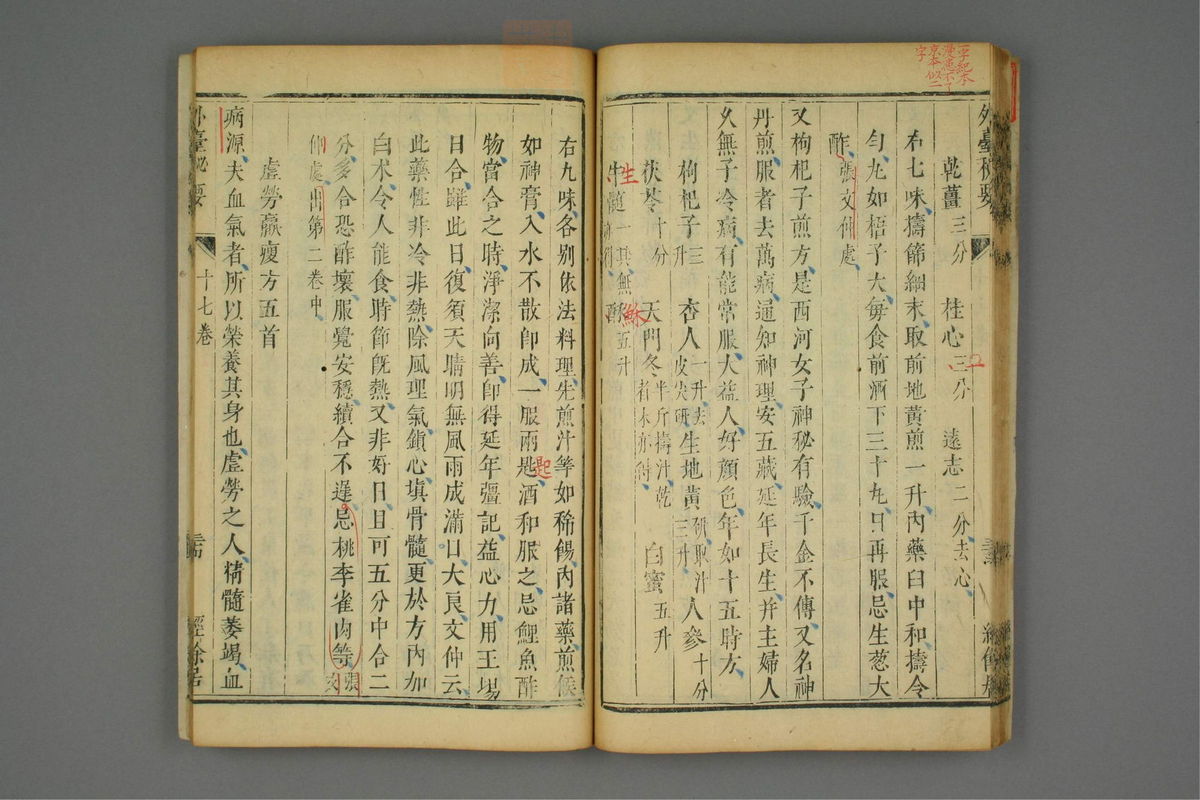 外臺秘要
乾薑三分　桂心三分　遠志二分去心
右七味擣篩細末取前地黃煎一升內藥臼中和擣令
勻丸如梧子大每食前酒下三十丸日再服忌生葱大
酢張文仲處
又枸杞子煎方是西河女子神秘有驗千金不傳又名神
丹煎服者去萬病通知神理安五藏延年長生并主婦人
久無子冷病有能常服大益人好顏色年如十五時方
枸杞子三升　杏人一升去皮尖研　生地黃研取汁三升　人參十分
茯苓十分　天門冬半斤擣汁乾者末亦得　白蜜五升
牛髓一具無亦得　酥五升
生
酥
二
右九味各別依法料理先煎汁等如稀餳內諸藥煎候
如神膏入水不散即成一服兩匙酒和服之忌鯉魚酢
物當合之時淨潔向善即得延年彊記益心力用王場
日合雖此日復須天晴明無風雨成滿日大良文仲云
此藥性非冷非熱除風理氣鎮心填骨髓更於方內加
白朮令人能食時節既熱又非好日且可五分中合二
分多合恐酢壞服覺安穩續合不遲忌桃李雀肉等張文
仲處出第二卷中
匙
虛勞羸瘦方五首
病源夫血氣者所以榮養其身也虛勞之人精髓萎竭血
外臺秘要　十七卷　經餘居